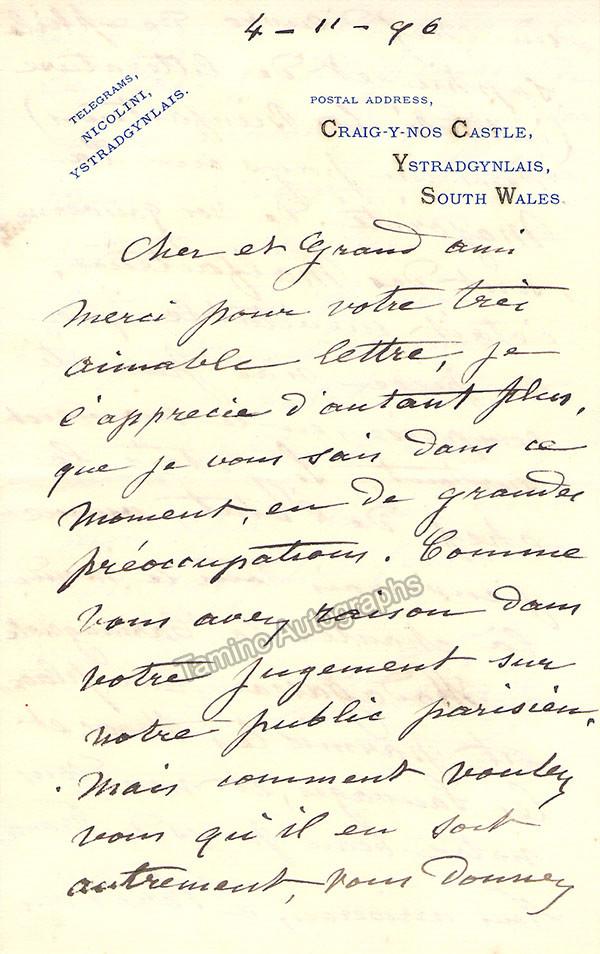 4 - 11 - 96
TELEGRAMS,
NICOLINI,
YSTRADGYNLAIS.
POSTAL ADDRESS,
CRAIG-Y-NOS CASTLE,
YSTRADGYNLAIS,
SOUTH WALES.
Cher et Grand ami
Merci pour votre très
aimable lettre, je
l'apprecie d'autant plus,
que je vous sais dans ce
moment, en de grandes
préoccupations. Comme
vous avez raison dans
votre jugement sur
notre public parisien.
Mais comment voulez
vous qu'il en soit
autrement, vous donnez
Tamino Autographs